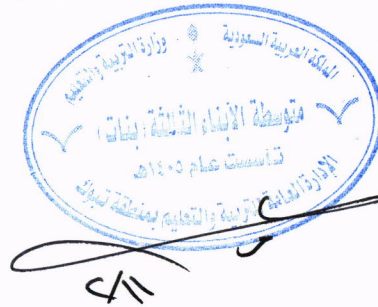 المملكة العربية السعودية وزارة التربية والتعليم
متوسطة الأبناء الثالثة (بنات)
تأسست عام ١٤٠٥هـ
الإدارة العامة للتربية والتعليم بمنطقة تبوك